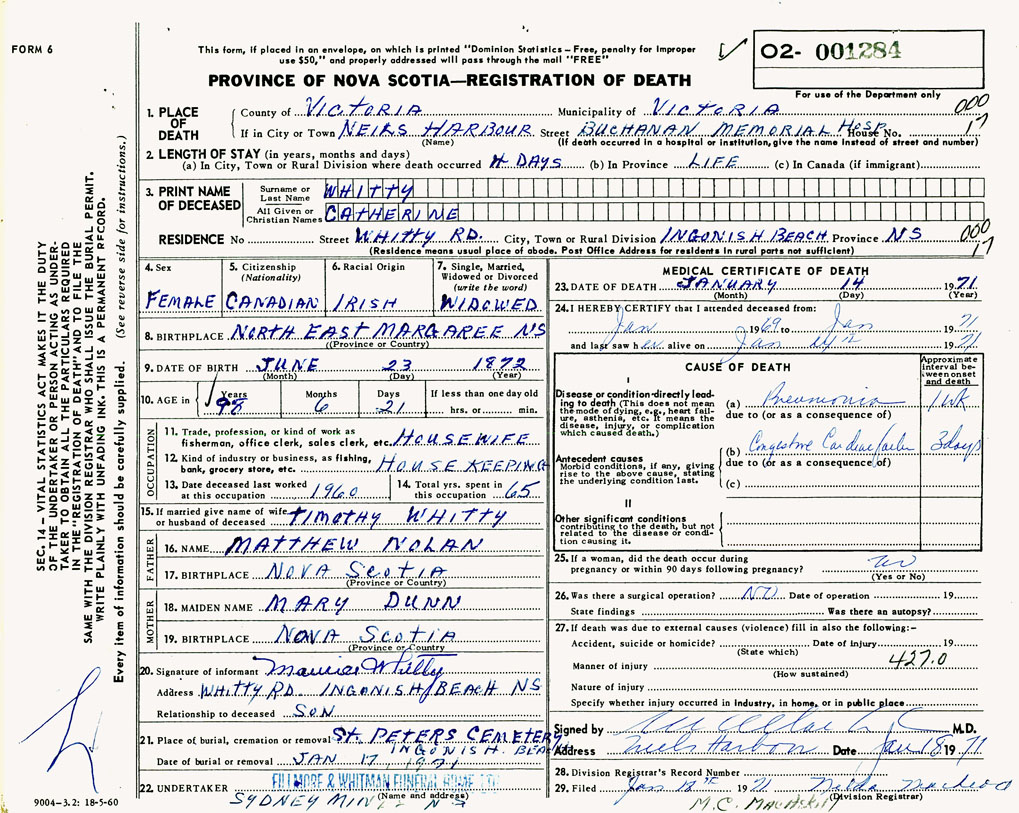 FORM 6
This form, if placed in an envelope, on which is printed "Dominion Statistics – Free, penalty for improper
use $50," and properly addressed will pass through the mail "FREE"
O2- 001284
PROVINCE OF NOVA SCOTIA—REGISTRATION OF DEATH
For use of the Department only
SEC. 14 – VITAL STATISTICS ACT MAKES IT THE DUTY
OF THE UNDERTAKER OR PERSON ACTING AS UNDER-
TAKER TO OBTAIN ALL THE PARTICULARS REQUIRED
IN THE "REGISTRATION OF DEATH" AND TO FILE THE
SAME WITH THE DIVISION REGISTRAR WHO SHALL ISSUE THE BURIAL PERMIT.
WRITE PLAINLY WITH UNFADING INK. THIS IS A PERMANENT RECORD.
Every item of information should be carefully supplied. (See reverse side for instructions.)
1. PLACE OF DEATH
County of VICTORIA Municipality of VICTORIA 000
If in City or Town NEILS HARBOUR Street BUCHANAN MEMORIAL HOSP. House No. 17
(Name) (If death occurred in a hospital or institution, give the name instead of street and number)
2. LENGTH OF STAY (in years, months and days)
(a) In City, Town or Rural Division where death occurred 4 DAYS (b) In Province LIFE (c) In Canada (if immigrant)
3. PRINT NAME OF DECEASED
Surname or Last Name WHITTY
All Given or Christian Names CATHERINE
RESIDENCE No Street WHITTY RD. City, Town or Rural Division INGONISH BEACH Province NS 000 17
(Residence means usual place of abode. Post Office Address for residents in rural parts not sufficient)
4. Sex FEMALE
5. Citizenship (Nationality) CANADIAN
6. Racial Origin IRISH
7. Single, Married, Widowed or Divorced (write the word) WIDOWED
8. BIRTHPLACE NORTH EAST MARGAREE NS
(Province or Country)
9. DATE OF BIRTH JUNE 23 1872
(Month) (Day) (Year)
10. AGE in Years 98 Months 6 Days 21 If less than one day old hrs. or min.
OCCUPATION
11. Trade, profession, or kind of work as
fisherman, office clerk, sales clerk, etc. HOUSEWIFE
12. Kind of industry or business, as fishing,
bank, grocery store, etc. HOUSE KEEPING
13. Date deceased last worked at this occupation 1960
14. Total yrs. spent in this occupation 65
15. If married give name of wife
or husband of deceased TIMOTHY WHITTY
FATHER
16. NAME MATTHEW NOLAN
17. BIRTHPLACE NOVA SCOTIA
(Province or Country)
MOTHER
18. MAIDEN NAME MARY DUNN
19. BIRTHPLACE NOVA SCOTIA
(Province or Country)
20. Signature of informant Maurice Whitty
Address WHITTY RD. INGONISH BEACH NS
Relationship to deceased SON
21. Place of burial, cremation or removal ST. PETERS CEMETERY
INGONISH BEACH
Date of burial or removal JAN 17, 1971
FILLMORE & WHITMAN FUNERAL HOME LTD
22. UNDERTAKER SYDNEY MINES NS
(Name and address)
MEDICAL CERTIFICATE OF DEATH
23. DATE OF DEATH JANUARY 14 1971
(Month) (Day) (Year)
24. I HEREBY CERTIFY that I attended deceased from:
Jan 1969 to Jan 1971
and last saw her alive on Jan 1971
CAUSE OF DEATH
Approximate interval between onset and death
I
Disease or condition directly lead-
ing to death (This does not mean
the mode of dying, e.g., heart fail-
ure, asthenia, etc. It means the
disease, injury, or complication
which caused death.)
(a) Pneumonia 1 wk
due to (or as a consequence of)
(b) Congestive Cardiac failure 3 days
due to (or as a consequence of)
Antecedent causes
Morbid conditions, if any, giving
rise to the above cause, stating
the underlying condition last.
(c)
II
Other significant conditions
contributing to the death, but not
related to the disease or condi-
tion causing it.
25. If a woman, did the death occur during
pregnancy or within 90 days following pregnancy? no
(Yes or No)
26. Was there a surgical operation? NO Date of operation 19
State findings Was there an autopsy?
27. If death was due to external causes (violence) fill in also the following:–
Accident, suicide or homicide? Date of injury 19
(State which)
Manner of injury 427.0
(How sustained)
Nature of injury
Specify whether injury occurred in industry, in home, or in public place
Signed by M.D.
Address Neils Harbour Date Jan 18 1971
28. Division Registrar's Record Number
29. Filed Jan 1971 Nelda MacLeod
(Division Registrar)
9004-3.2: 18-5-60